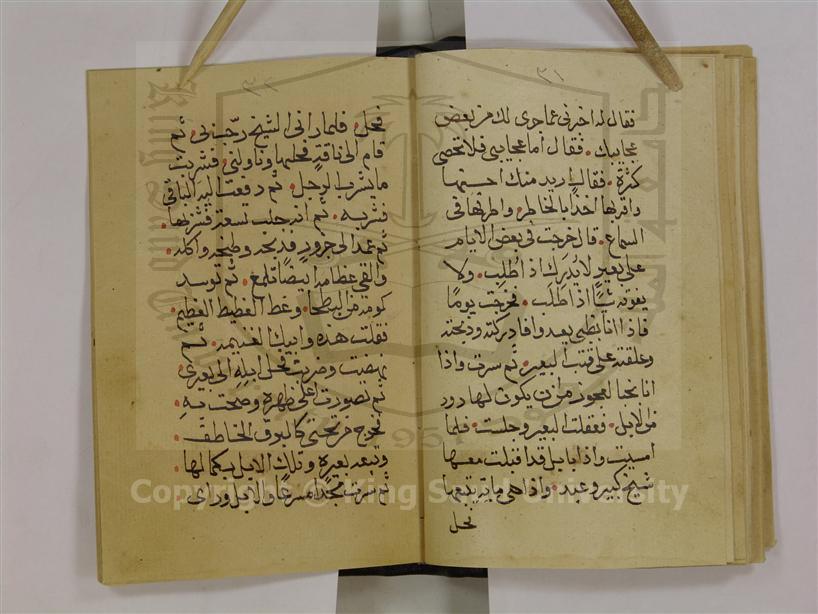 ٣١
فقال له اخبرني عما جرى لك من بعض
عجايبك . فقال اما عجايبي فلا تحصى
كثرة . فقال اريد منك احسنها
واقربها اخذا بالخاطر واطربها في
السماع . قال خرجت في بعض الايام
على بعير لا يدرك اذا طلب . ولا
يفوته شيأ اذا طلب . فخرجت يوما
فاذا انا بظبي يعدو فادركته وذبحته
وعلقته على قتب البعير . ثم سرت واذا
انا بخبا لعجوز
من الابل . فعقلت البعير وجلست . فلما
امسيت واذا بابل قد اقبلت معها
شيخ كبير وعبد . واذا هي ماية يتبعها
فحل
فحل . فلما راني الشيخ رحب بي . ثم
قام الى ناقة فحلبها وناولني . فشربت
ما يشرب الرجل . ثم دفعت اليه الباقي
فشربه . ثم انه حلب تسعة فشربها .
ثم عمد الى جزور فذبحه وطبخه واكله .
والقى عظامه بيضا تلمع . ثم توسد
كومة من البطحا . وغط الغطيط العظيم .
فقلت هذه وابيك الغنيمه . ثم
نهضت وضربت فحل ابله الى بعيري
ثم تصورت اعلى ظهره وصحت به .
فخرج من تحتي كالبرق الخاطف .
وتبعه بعيره وتلك الابل بكمالها .
ثم سرت مجدا مسرعا والابل وراي .
Copyright © King Saud University
1957